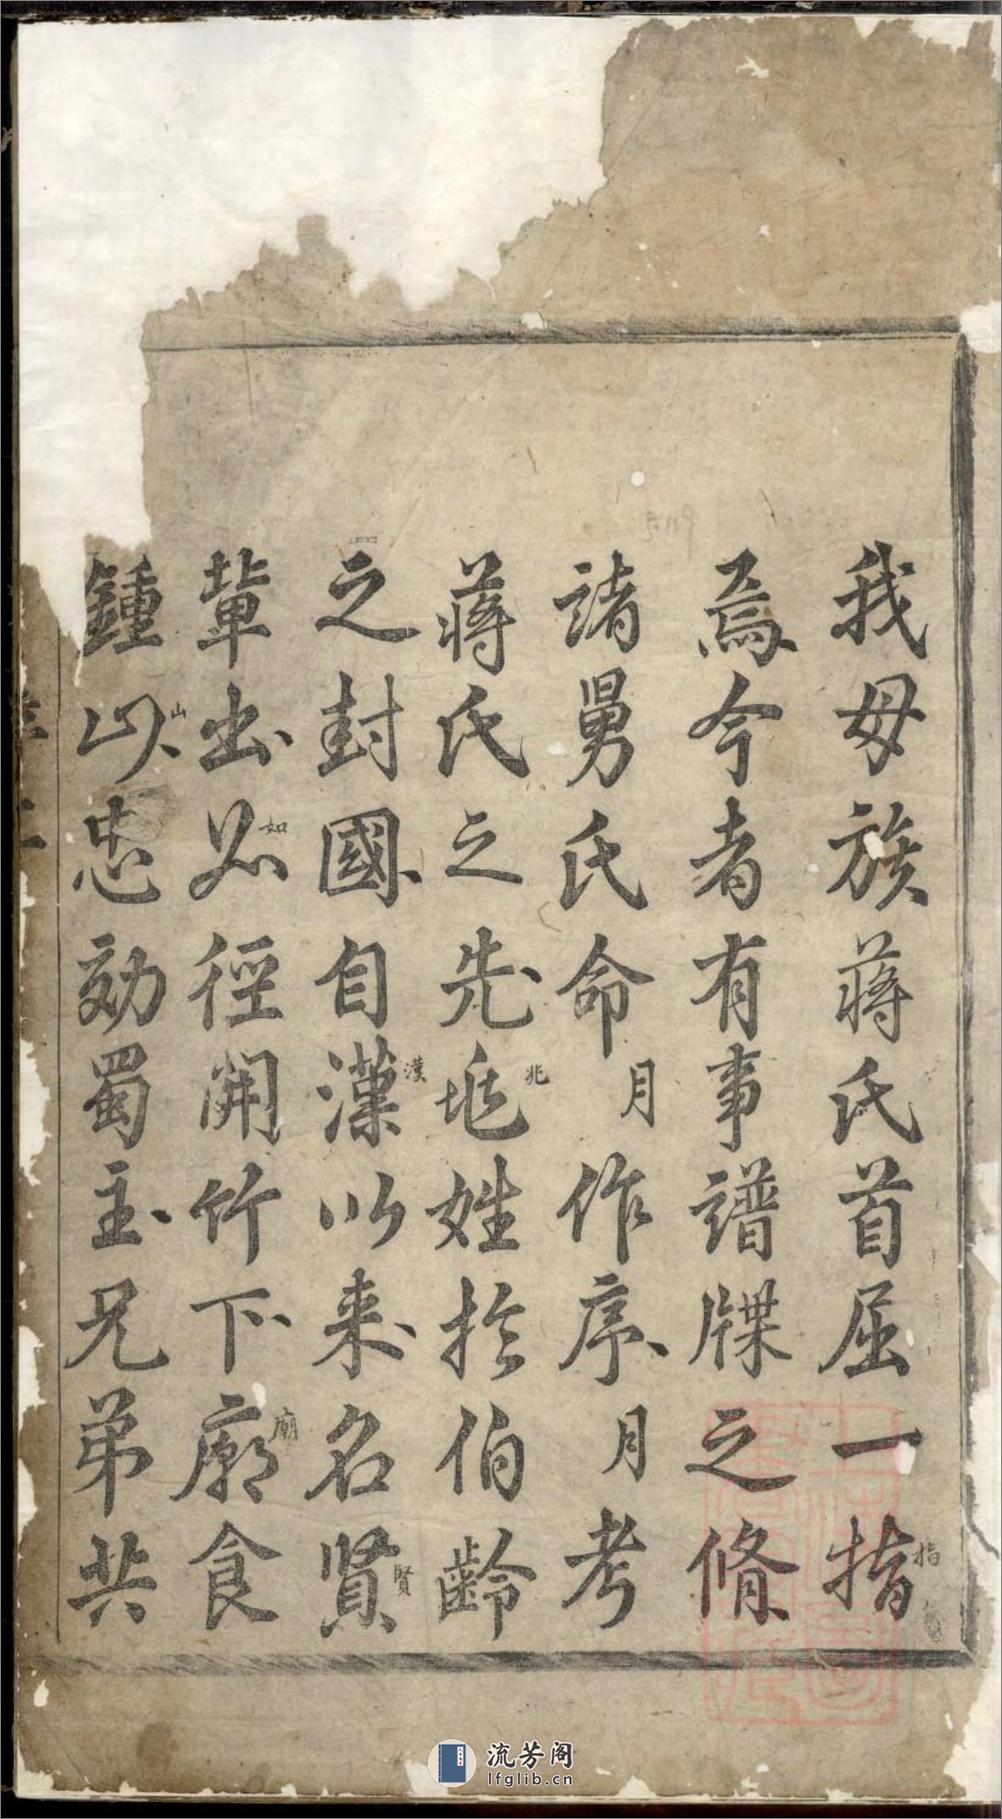 我母族蔣氏首屈一指
指
焉今者有事譜牒之脩
諸舅氏命月作序月考
蔣氏之先𠧞姓於伯齡
兆
之封國自漢以来名賢
漢
賢
輩出如徑開竹下廟食
如
廟
鍾山忠効蜀主兄弟共
山
流芳阁
lfglib.cn